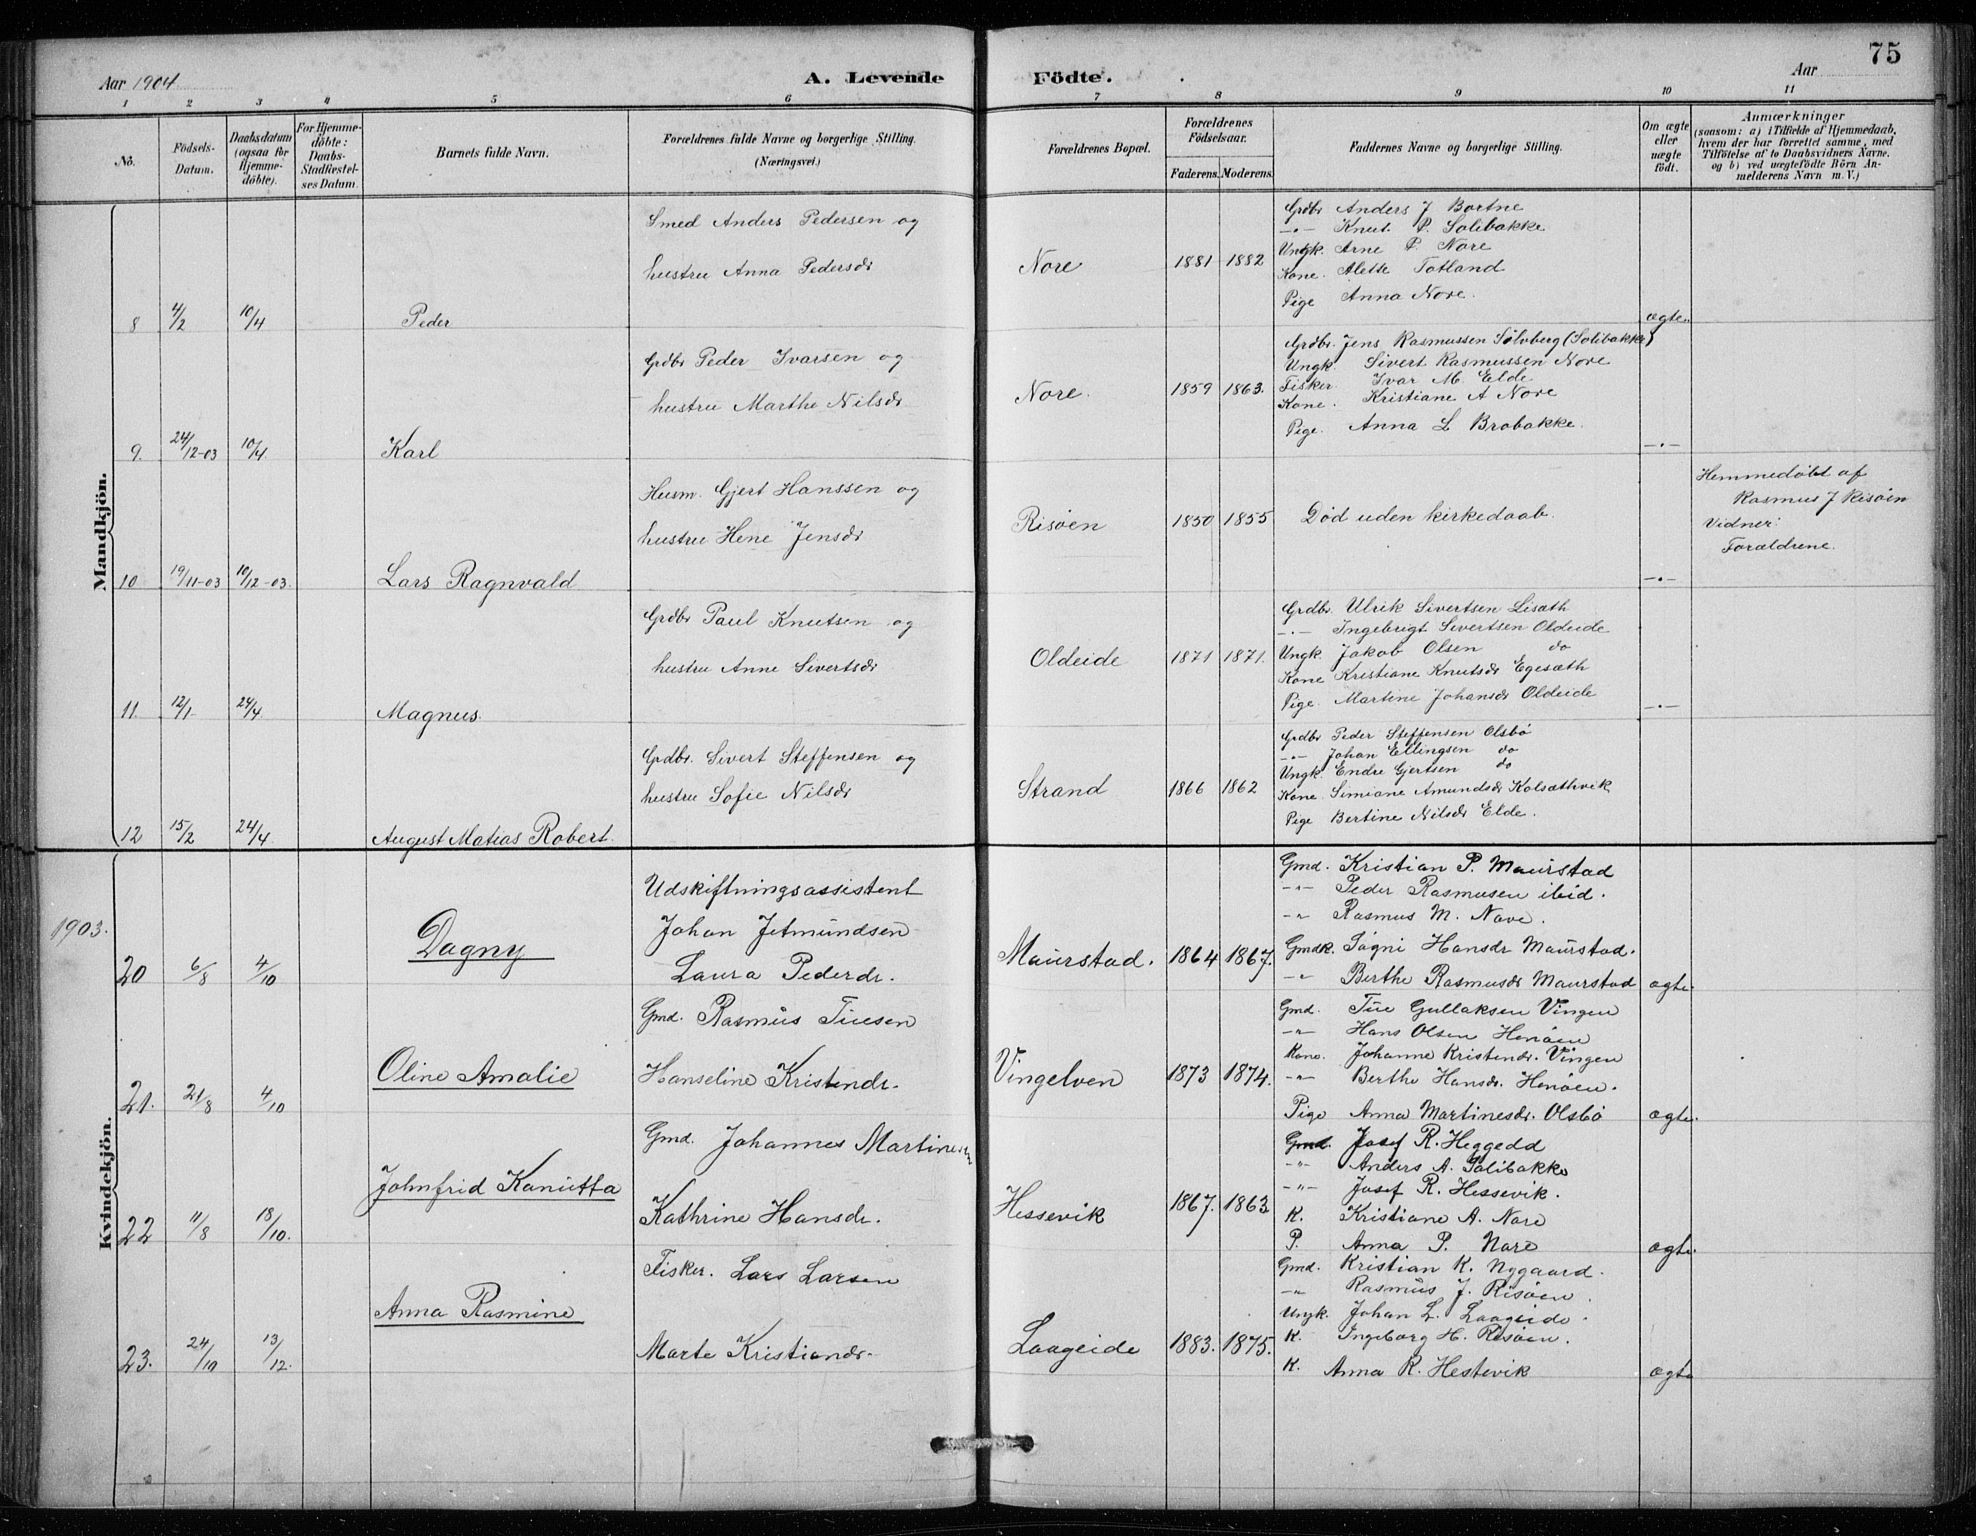 75
Aar 1904.
A. Levende
Födte.
Aar
1 2 3 4 5 6 7 8 9 10 11
No.
Födsels-Datum.
Daabsdatum (ogsaa for Hjemme-döbte).
For Hjemme-döbte: Daabs-Stadfæstel-ses Datum.
Barnets fulde Navn.
Forældrenes fulde Navne og borgerlige Stilling. (Næringsvei.)
Forældrenes Bopæl.
Forældrenes Födselsaar.
Faderens. Moderens.
Faddernes Navne og borgerlige Stilling.
Om ægte eller uægte födt.
Anmærkninger
(saasom: a) i Tilfælde af Hjemmedaab,
hvem der har forrettet samme, med
Tilföielse af to Daabsvidners Navne.
og b) ved uægtefödte Börn An-
melderens Navn m. V.)
Mandkjön.
Smed Anders Pedersen og
hustru Anna Pedersdr
8 4/2 10/4 Peder
Nore 1881 1882
Grdbr Anders J Bortne
-"- Knut P. Solibakke
Ungk. Arne P. Nore
Kone. Alette Totland
Pige Anna Nore.
ægte.
Grdbr Peder Ivarsen og
hustru Marthe Nilsdr.
9. 24/12-03 10/4 Karl
Nore. 1859 1863.
Grdbr. Jens Rasmussen Sölvberg (Solibakke)
Ungk. Sivert Rasmussen Nore
Fisker. Ivar M. Elde
Kone. Kristiane A Nore
Pige. Anna L Brobakke.
-"-
Husm. Gjert Hanssen og
hustru Hene Jensdr
10 19/11-03 10/12-03. Lars Ragnvald
Risöen 1850 1855
Död uden kirkedaab.
-"-
Hemmedöbt af
Rasmus J Risöen
Vidner:
Forældrene.
Grdbr Paul Knutsen og
hustru Anne Sivertsdr
11. 12/1. 24/4 Magnus.
Oldeide 1871 1871.
Grdbr. Ulrik Sivertsen Lisæth
-"- Ingebrigt Sivertsen Oldeide
Ungk. Jakob Olsen do
Kone Kristiane Knutsdr Egesæth
Pige. Martine Johansdr Oldeide
-"-
Grdbr. Sivert Steffensen og
hustru Sofie Nilsdr
12 15/2 24/4 August Matias Robert.
Strand 1866 1862
Grdbr Peder Steffensen Olsbö
-"- Johan Ellingsen do
Ungk. Endre Gjertsen do
Kone. Simiane Amundsdr Kolsæthvik
Pige Bertine Nilsdr Elde.
1903.
Kvindekjön.
Udskiftningsassistent
Johan Jetmundsen
Laura Pederdr.
20 6/8 4/10 Dagny
Maurstad. 1864 1867.
Gmd. Kristian P. Maurstad
-"- Peder Rasmusen ibid.
-"- Rasmus M. Nave.
Gmdk. Sögni Hansdr Maurstad.
-"- Berthe Rasmusdr Maurstad
ægte.
Gmd. Rasmus Tuesen
Hanseline Kristendr.
21. 21/8 4/10 Oline Amalie
Vingelven 1873 1874.
Gmd. Tue Gullaksen Vingen
-"- Hans Olsen Henöen
Kone. Johanne Kristendr. Vingen
-"- Berthe Hansdr. Henöen.
Pige Anna Martinesdr. Olsbö
ægte.
Gmd. Johannes Martinesen
Kathrine Hansdr.
22 11/8 18/10. Johnfrid Kanutta
Hessevik 1867. 1863
Gmd. Josef R. Heggedd
-"- Anders A. Solibakke
-"- Josef R. Hessevik.
K. Kristiane A. Nore
P. Anna P. Nore
ægte.
Fisker. Lars Larsen
Marte Kristiandr.
23. 24/10 13/12. Anna Rasmine
Laageide 1883. 1875.
Gmd. Kristian K. Nygaard.
-"- Rasmus J. Risöen.
Ungk. Johan L. Laageide.
K. Ingeborg H. Risöen.
K. Anna R. Hestevik
ægte